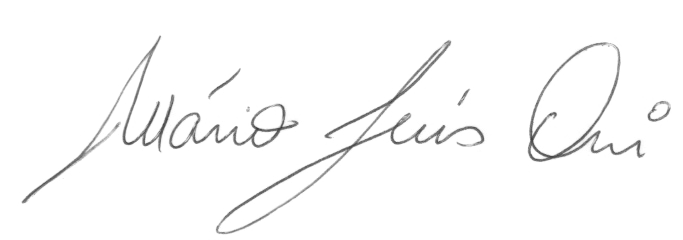 Mário Luís Orsi